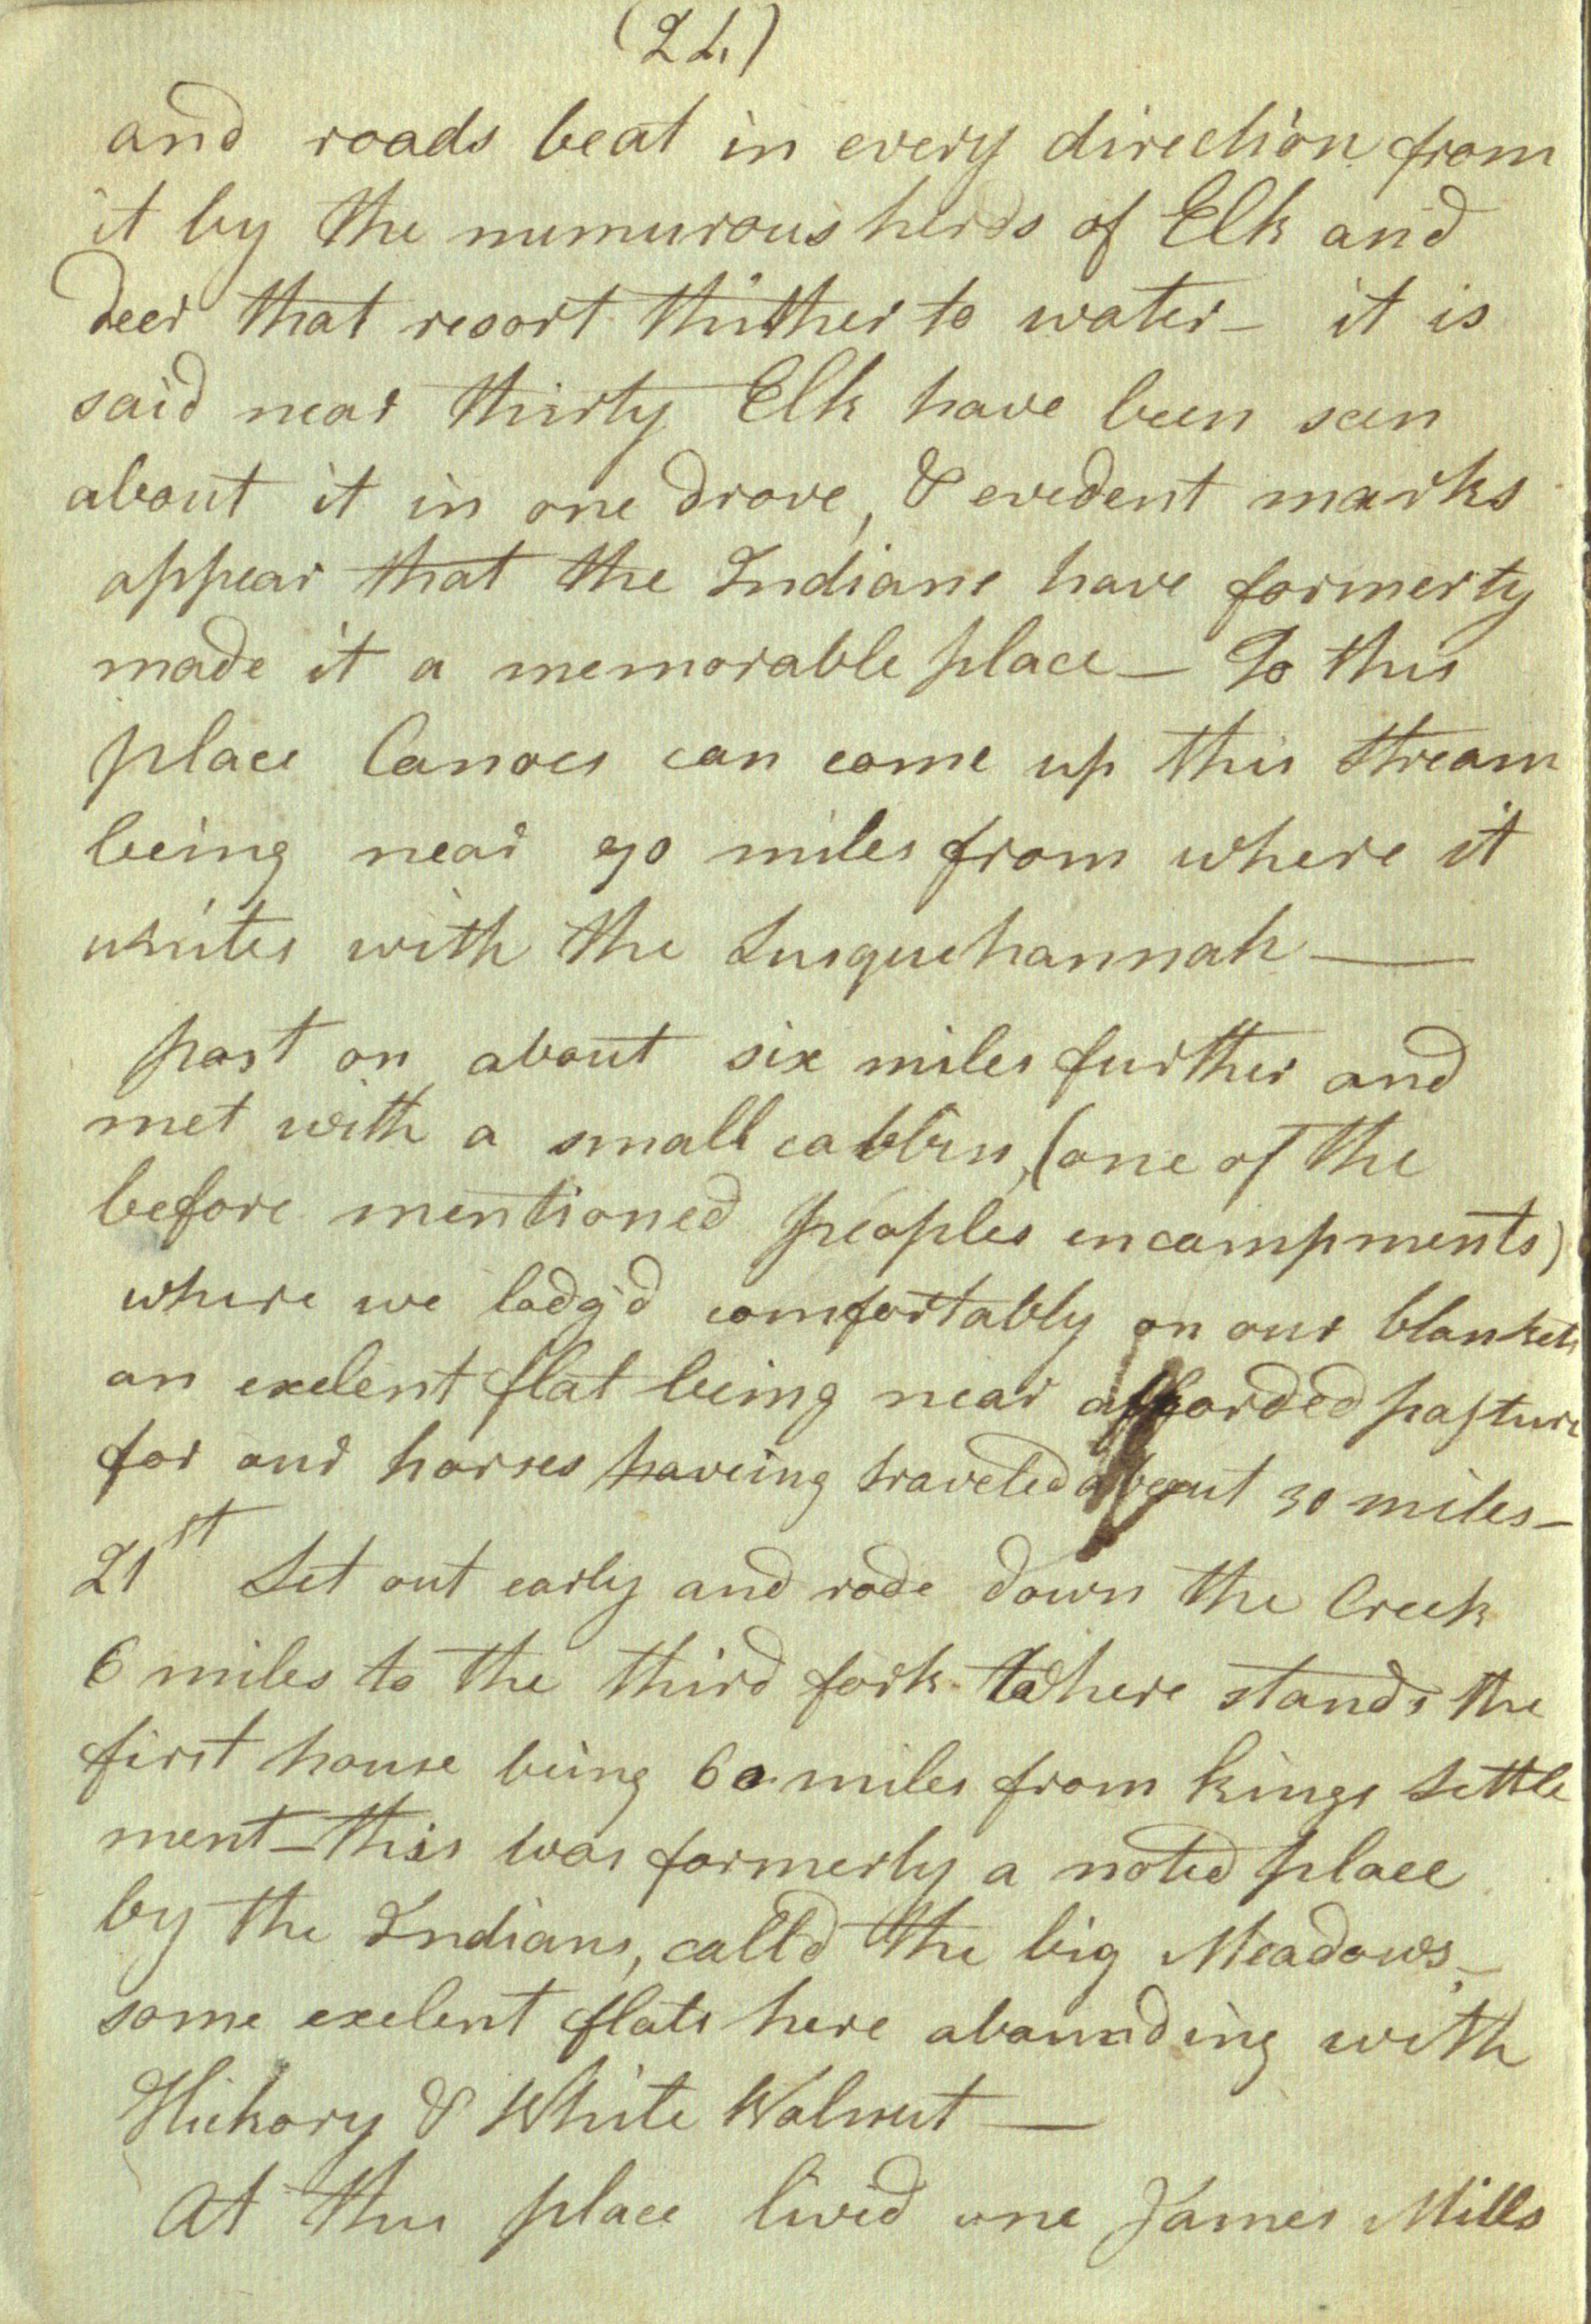 (22.)
and roads beat in every direction from
it by the numurous herds of Elk and
deer that resort thither to water_ it is
said near thirty Elk have been seen
about it in one drove, & evedent marks
appear that the Indians have formerty
made it a memorable place_ To this
place Canoes can come up this stream
being near 90 miles from where it
unites with the Susquehannah —
past on about six miles further and
met with a small cabbin, (one of the
before mentioned peoples encampments)
where we lodg'd comfortably on our blankets
an exelent flat being near afforded pasture
for our horses haveing traveled about 30 miles_
21st Set out early and rode down the Creek
6 miles to the third fork where stands the
first house being 60 miles from Kings Settle
ment_this was formerly a noted place
by the Indians, call'd the big Meadows_
some exelent flats here abounding with
Hickory & White Walnut —
At this place lived one James Mills